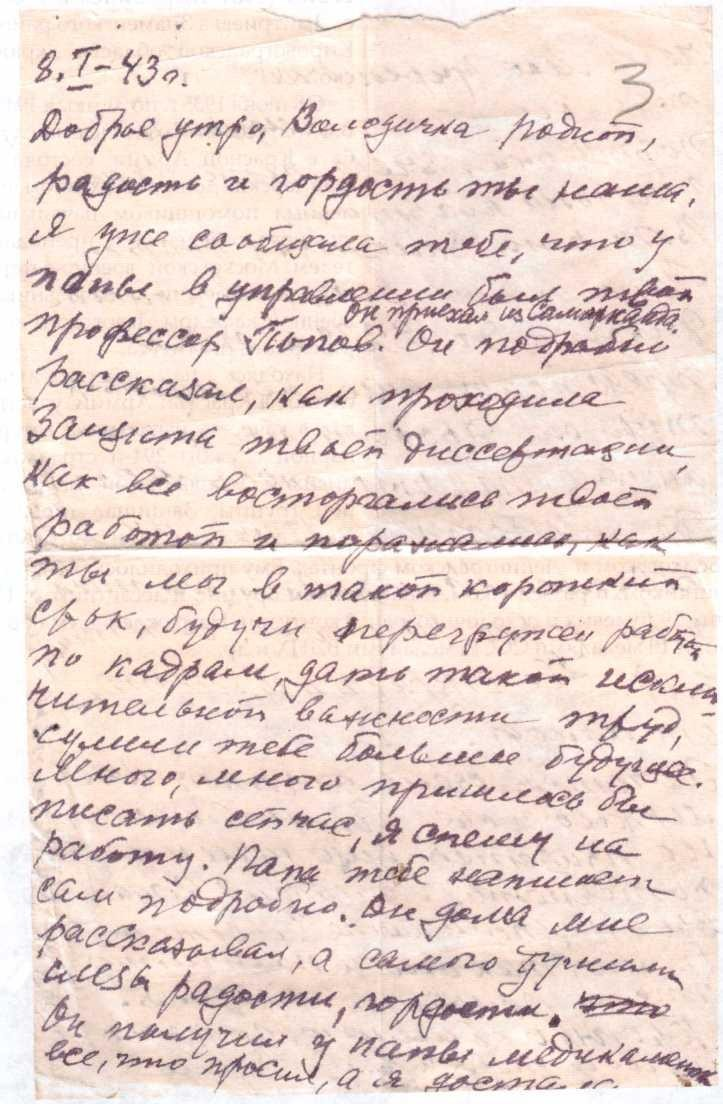 8.I-43г.
3
Доброе утро, Володичка родной,
радость и гордость ты наша.
Я уже сообщала тебе, что у
папы в управлении был твой
он приехал из Самарканда.
профессор Попов. Он подробно
рассказал, как проходила
защита твоей диссертации,
как все восторгались твоей
работой и поражались, как
ты мог в такой короткий
срок, будучи перегружен работой
по кадрам, дать такой исклю-
чительной важности труд,
сулили тебе большое будущее.
Много, много пришлось бы
писать сейчас, я спешу на
работу. Папа тебе напишет
сам подробно. Он дома мне
рассказывал, а самого душили
слезы радости, гордости.
Он получил у папы медикаменты
все, что просил, а я